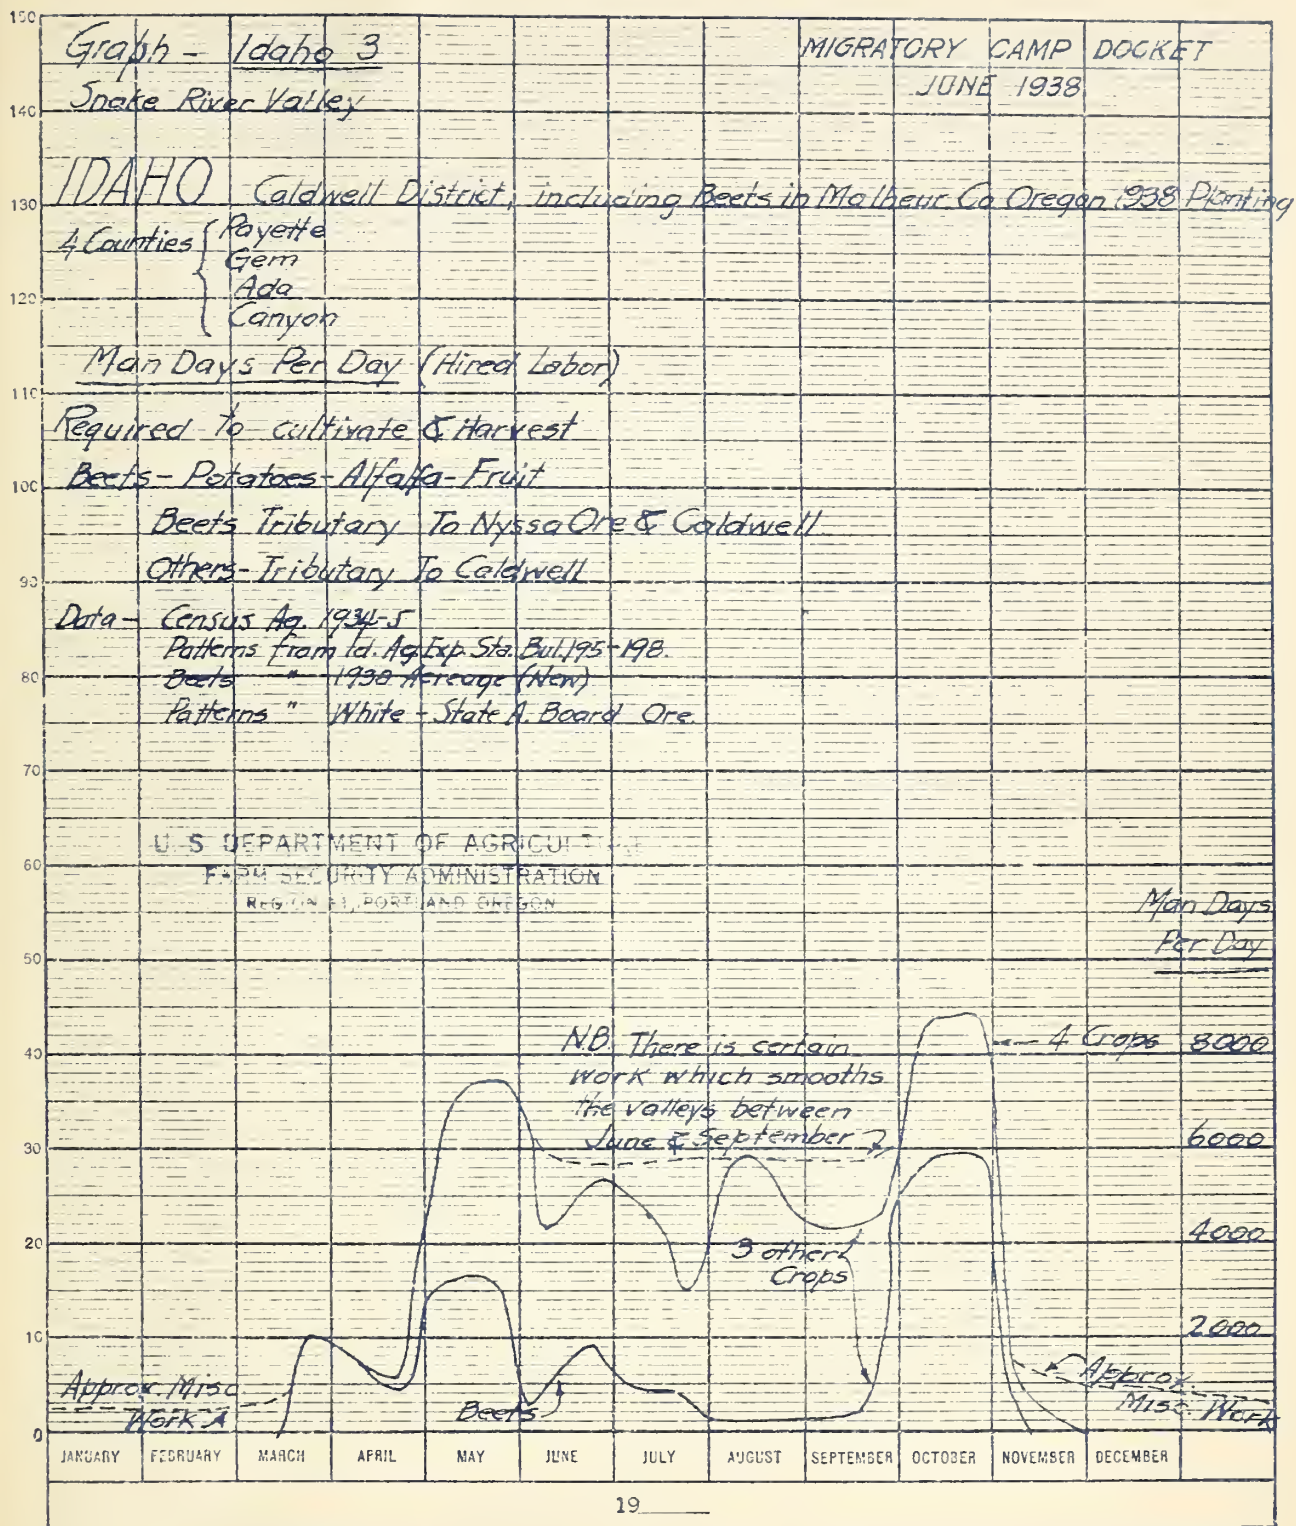 Graph - Idaho 3
Snake River Valley
MIGRATORY CAMP DOCKET
JUNE 1938
IDAHO Caldwell District, including Beets in Malheur Co Oregon 1938 Planting
4 Counties { Payette
Gem
Ada
Canyon
Man Days Per Day (Hired Labor)
Required To cultivate & Harvest
Beets - Potatoes - Alfalfa - Fruit
Beets Tributary To Nyssa Ore & Caldwell
Others - Tributary To Caldwell
Data - Census Ag. 1934-5
Patterns from Id. Ag. Exp. Sta. Bul. 195-198.
Beets " 1938 Acreage (New)
Patterns " White - State A. Board Ore.
U S DEPARTMENT OF AGRICULTURE
FARM SECURITY ADMINISTRATION
REGION 11, PORTLAND OREGON
Man Days
Per Day
N.B. There is certain
work which smooths
the valleys between
June & September
4 Crops
3 other
Crops
Beets
Approx. Misc
Work
Approx
Misc. Work
150
140
130
120
110
100
90
80
70
60
50
40
30
20
10
0
8000
6000
4000
2000
JANUARY FEBRUARY MARCH APRIL MAY JUNE JULY AUGUST SEPTEMBER OCTOBER NOVEMBER DECEMBER
19